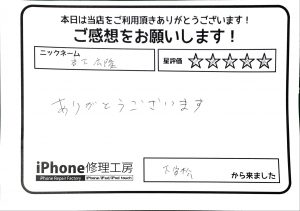 本日は当店をご利用頂きありがとうございます！
ご感想をお願いします！
ニックネーム
星評価 ☆☆☆☆☆
ありがとうございます
iPhone修理工房
iPhone Repair Factory
iPhone/iPad/iPod touch
から来ました